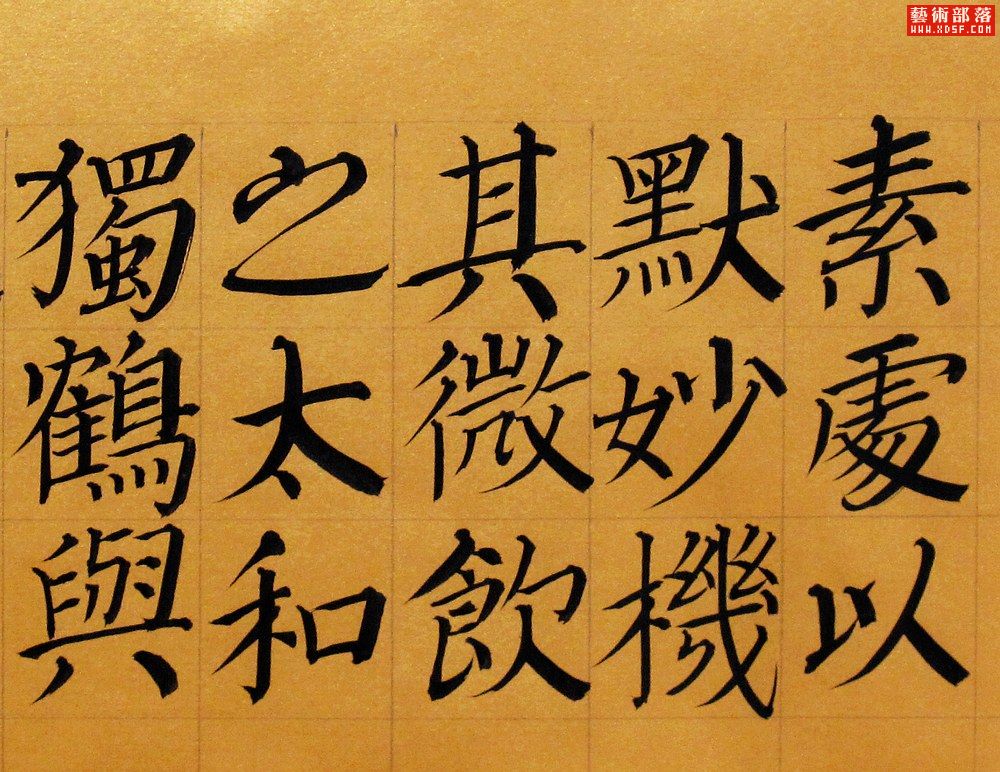 素處以
默妙機
其微飲
之太和
獨鶴與
藝術部落
WWW.XDSF.COM